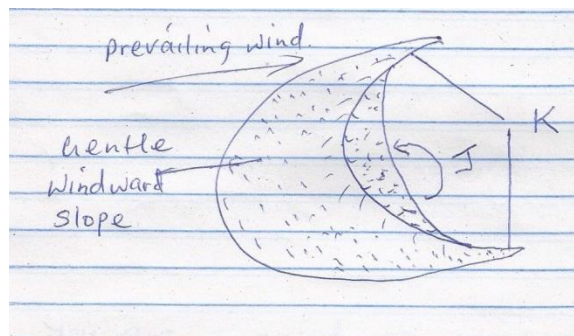 prevailing wind.
Gentle
windward
slope
K
J